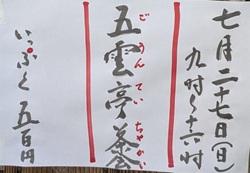 七月二十七日(日)
九時〜十六時
五雲亭釜
ごうんてい ちゃかい
いっぷく 五百円